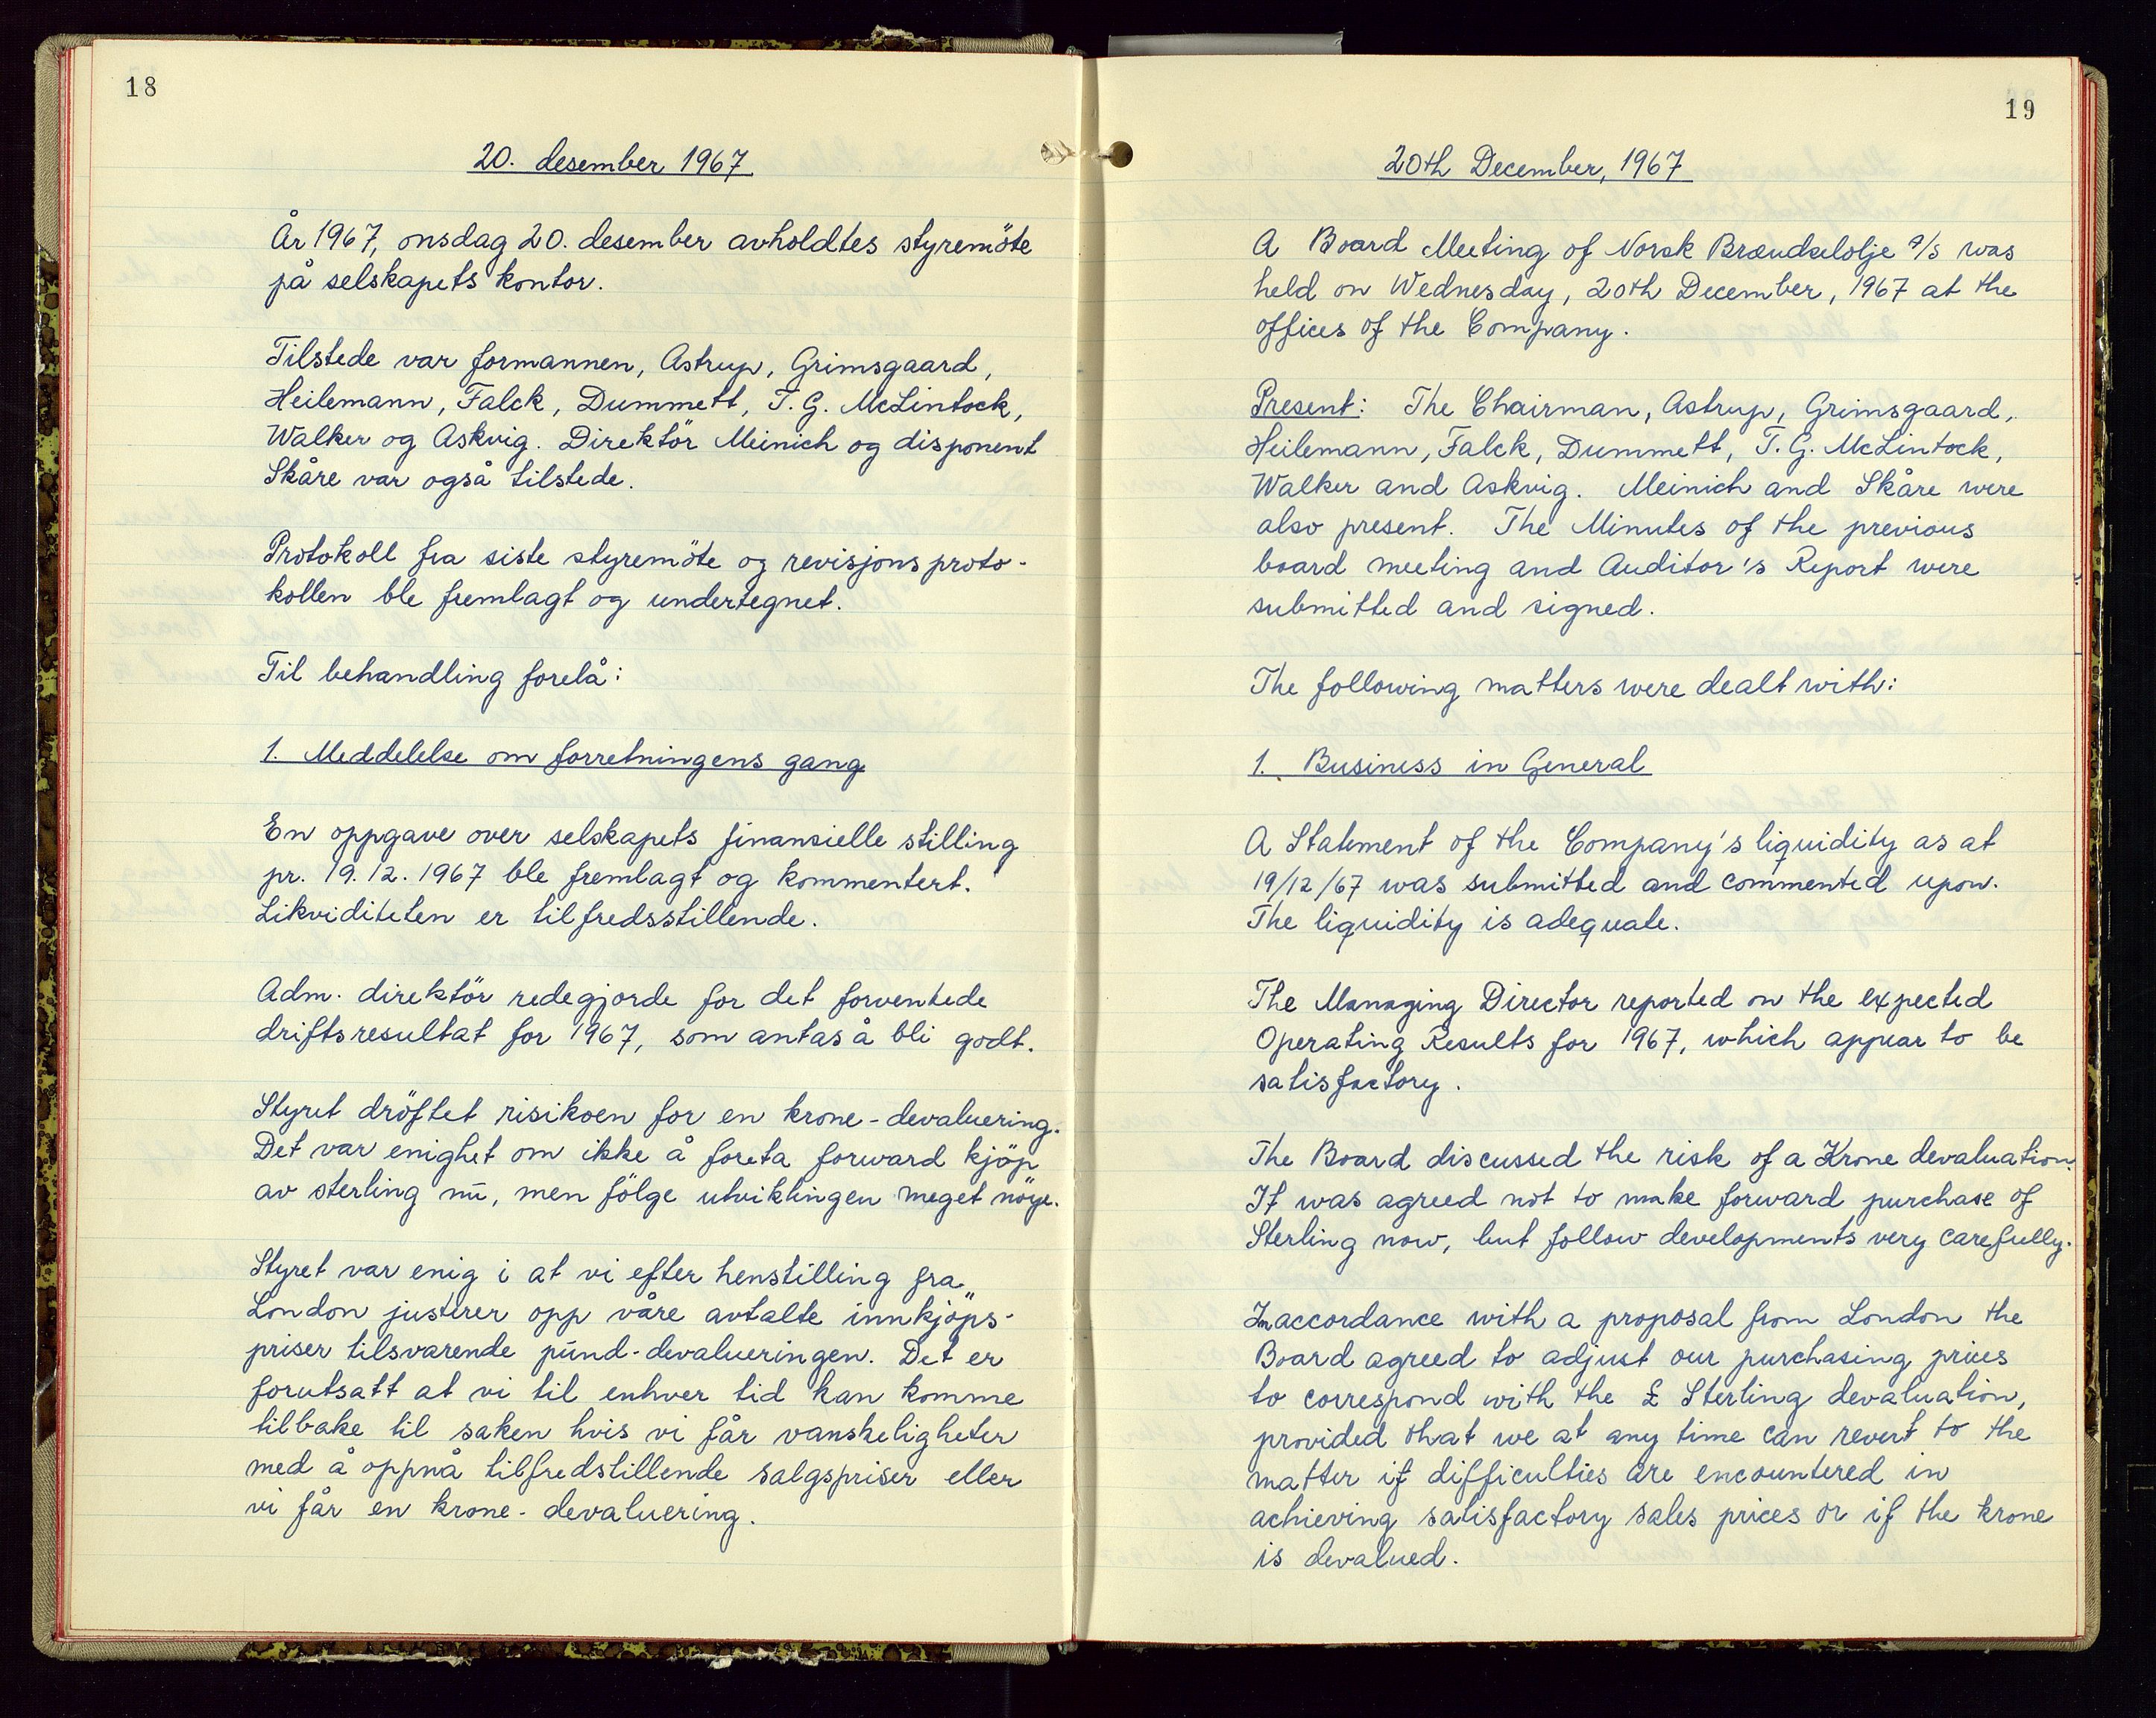 18
20. desember 1967
År 1967, onsdag 20. desember avholdtes styremöte
på selskapets kontor.
Tilstede var formannen, Astrup, Grimsgaard,
Heilemann, Falck, Dummett, T. G. McLintock,
Walker og Askvig. Direktör Meinich og disponent
Skåre var også tilstede.
Protokoll fra siste styremöte og revisjonsproto-
kollen ble fremlagt og undertegnet.
Til behandling forelå:
1. Meddelelse om forretningens gang
En oppgave over selskapets finansielle stilling
pr. 19.12.1967 ble fremlagt og kommentert.
Likviditeten er tilfredsstillende.
Adm. direktör redegjorde for det forventede
driftsresultat for 1967, som antas å bli godt.
Styret dröftet risikoen for en krone-devaluering.
Det var enighet om ikke å foreta forward kjöp
av sterling nū, men fölge utviklingen meget nöye.
Styret var enig i at vi efter henstilling fra
London justerer opp våre avtalte innkjöps-
priser tilsvarende pūnd-devalueringen. Det er
forutsatt at vi til enhver tid kan komme
tilbake til saken hvis vi får vanskeligheter
med å oppnå tilfredstillende salgspriser eller
vi får en krone-devaluering.
19
20th December, 1967
A Board Meeting of Norsk Brændselolje A/S was
held on Wednesday, 20th December, 1967 at the
offices of the Company.
Present: The Chairman, Astrup, Grimsgaard,
Heilemann, Falck, Dummett, T. G. McLintock,
Walker and Askvig. Meinich and Skåre were
also present. The Minutes of the previous
board meeting and Auditor's Report were
submitted and signed.
The following matters were dealt with:
1. Business in General
A Statement of the Company's liquidity as at
19/12/67 was submitted and commented upon.
The liquidity is adequate.
The Managing Director reported on the expected
Operating Results for 1967, which appear to be
satisfactory.
The Board discussed the risk of a Krone devaluation.
It was agreed not to make forward purchase of
Sterling now, but follow developments very carefully.
In accordance with a proposal from London the
Board agreed to adjust our purchasing prices
to correspond with the £ Sterling devaluation,
provided that we at any time can revert to the
matter if difficulties are encountered in
achieving satisfactory sales prices or if the krone
is devalued.